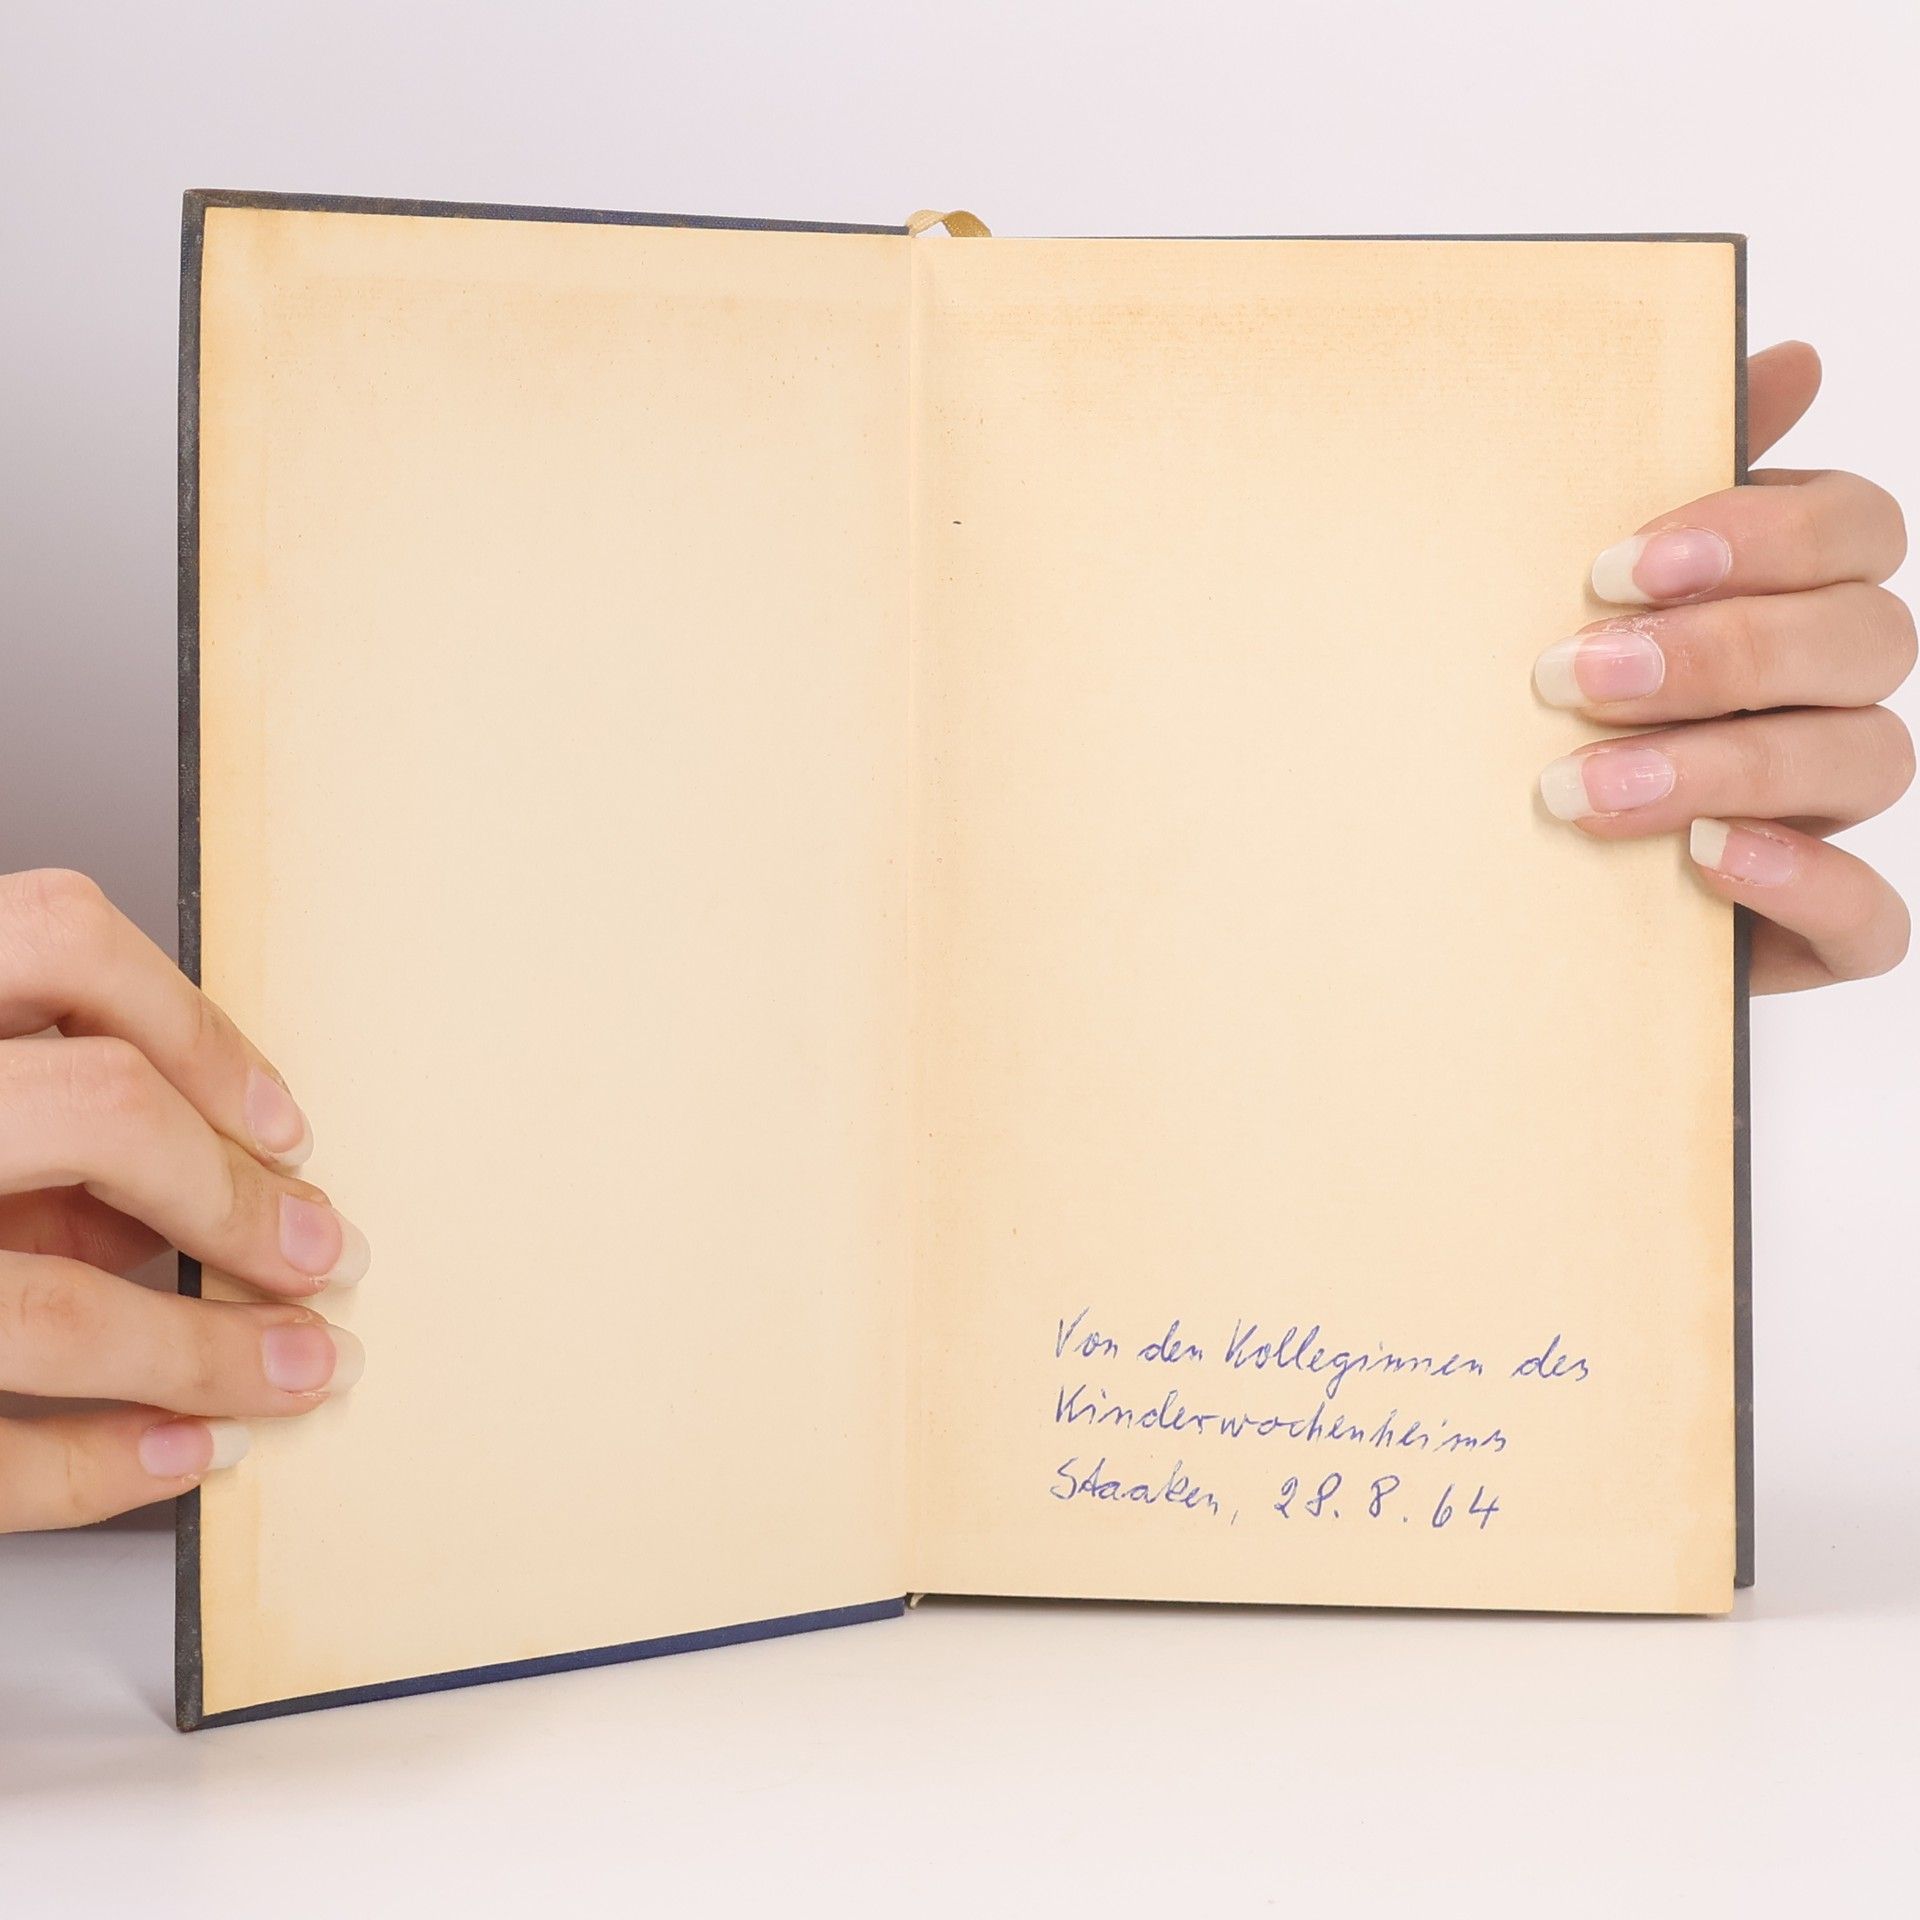 Von den Kolleginnen des
Kinderwochenheims
Staaken, 28. 8. 64